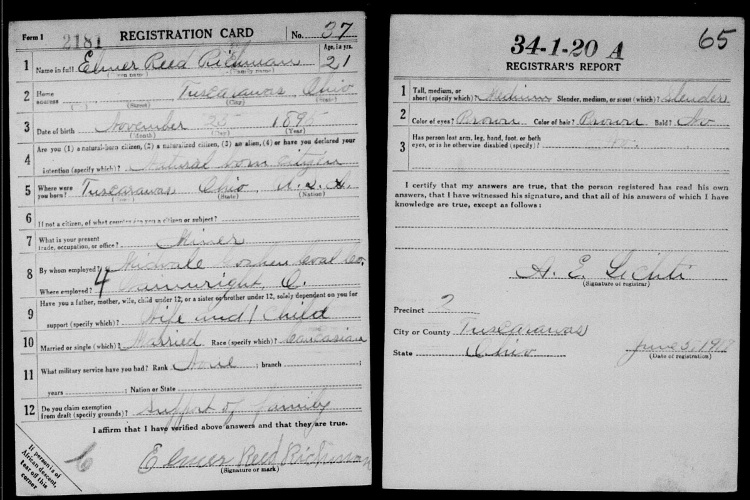 Form 1 2181 REGISTRATION CARD No. 37
1 Name in full Elmer Reed Richman Age, in yrs. 21
(Family name)
2 Home address Tuscarawas Ohio
(Street) (City) (State)
3 Date of birth November 25 1895
(Month) (Day) (Year)
4 Are you (1) a natural-born citizen, (2) a naturalized citizen, (3) an alien, (4) or have you declared your
intention (specify which)? Natural born citizen
5 Where were you born? Tuscarawas Ohio U.S.A.
(State) (Nation)
6 If not a citizen, of what country are you a citizen or subject?
7 What is your present trade, occupation, or office? Miner
8 By whom employed? Midvale Goshen Coal Co.
Where employed? Wainwright, O.
9 Have you a father, mother, wife, child under 12, or a sister or brother under 12, solely dependent on you for
support (specify which)? Wife and 1 child
10 Married or single (which)? Married Race (specify which)? Caucasian
11 What military service have you had? Rank None ; branch
years ; Nation or State
12 Do you claim exemption from draft (specify grounds)? Support of family
I affirm that I have verified above answers and that they are true.
Elmer Reed Richman
(Signature or mark)
If person is of African descent, tear off this corner
34-1-20 A 65
REGISTRAR'S REPORT
1 Tall, medium, or short (specify which)? Medium Slender, medium, or stout (which)? Slender
2 Color of eyes? Brown Color of hair? Brown Bald? No
3 Has person lost arm, leg, hand, foot, or both
eyes, or is he otherwise disabled (specify)? No
I certify that my answers are true, that the person registered has read his own
answers, that I have witnessed his signature, and that all of his answers of which I have
knowledge are true, except as follows:
A. E. Lechti
(Signature of registrar)
Precinct
City or County Tuscarawas
State Ohio June 5, 1917
(Date of registration)